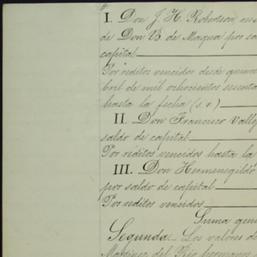 I. Don J. H. Robertson, en
de Don B. de Maqua por sa
capital
Por réditos vencidos desde
bril de mil ochocientos
hasta la fecha (s. e.)
II. Don Francisco Vall
saldo de capital
Por réditos vencidos hasta la
III. Don Hermenegild
por saldo de capital
Por réditos vencidos
Suma
Segunda. Los valores d